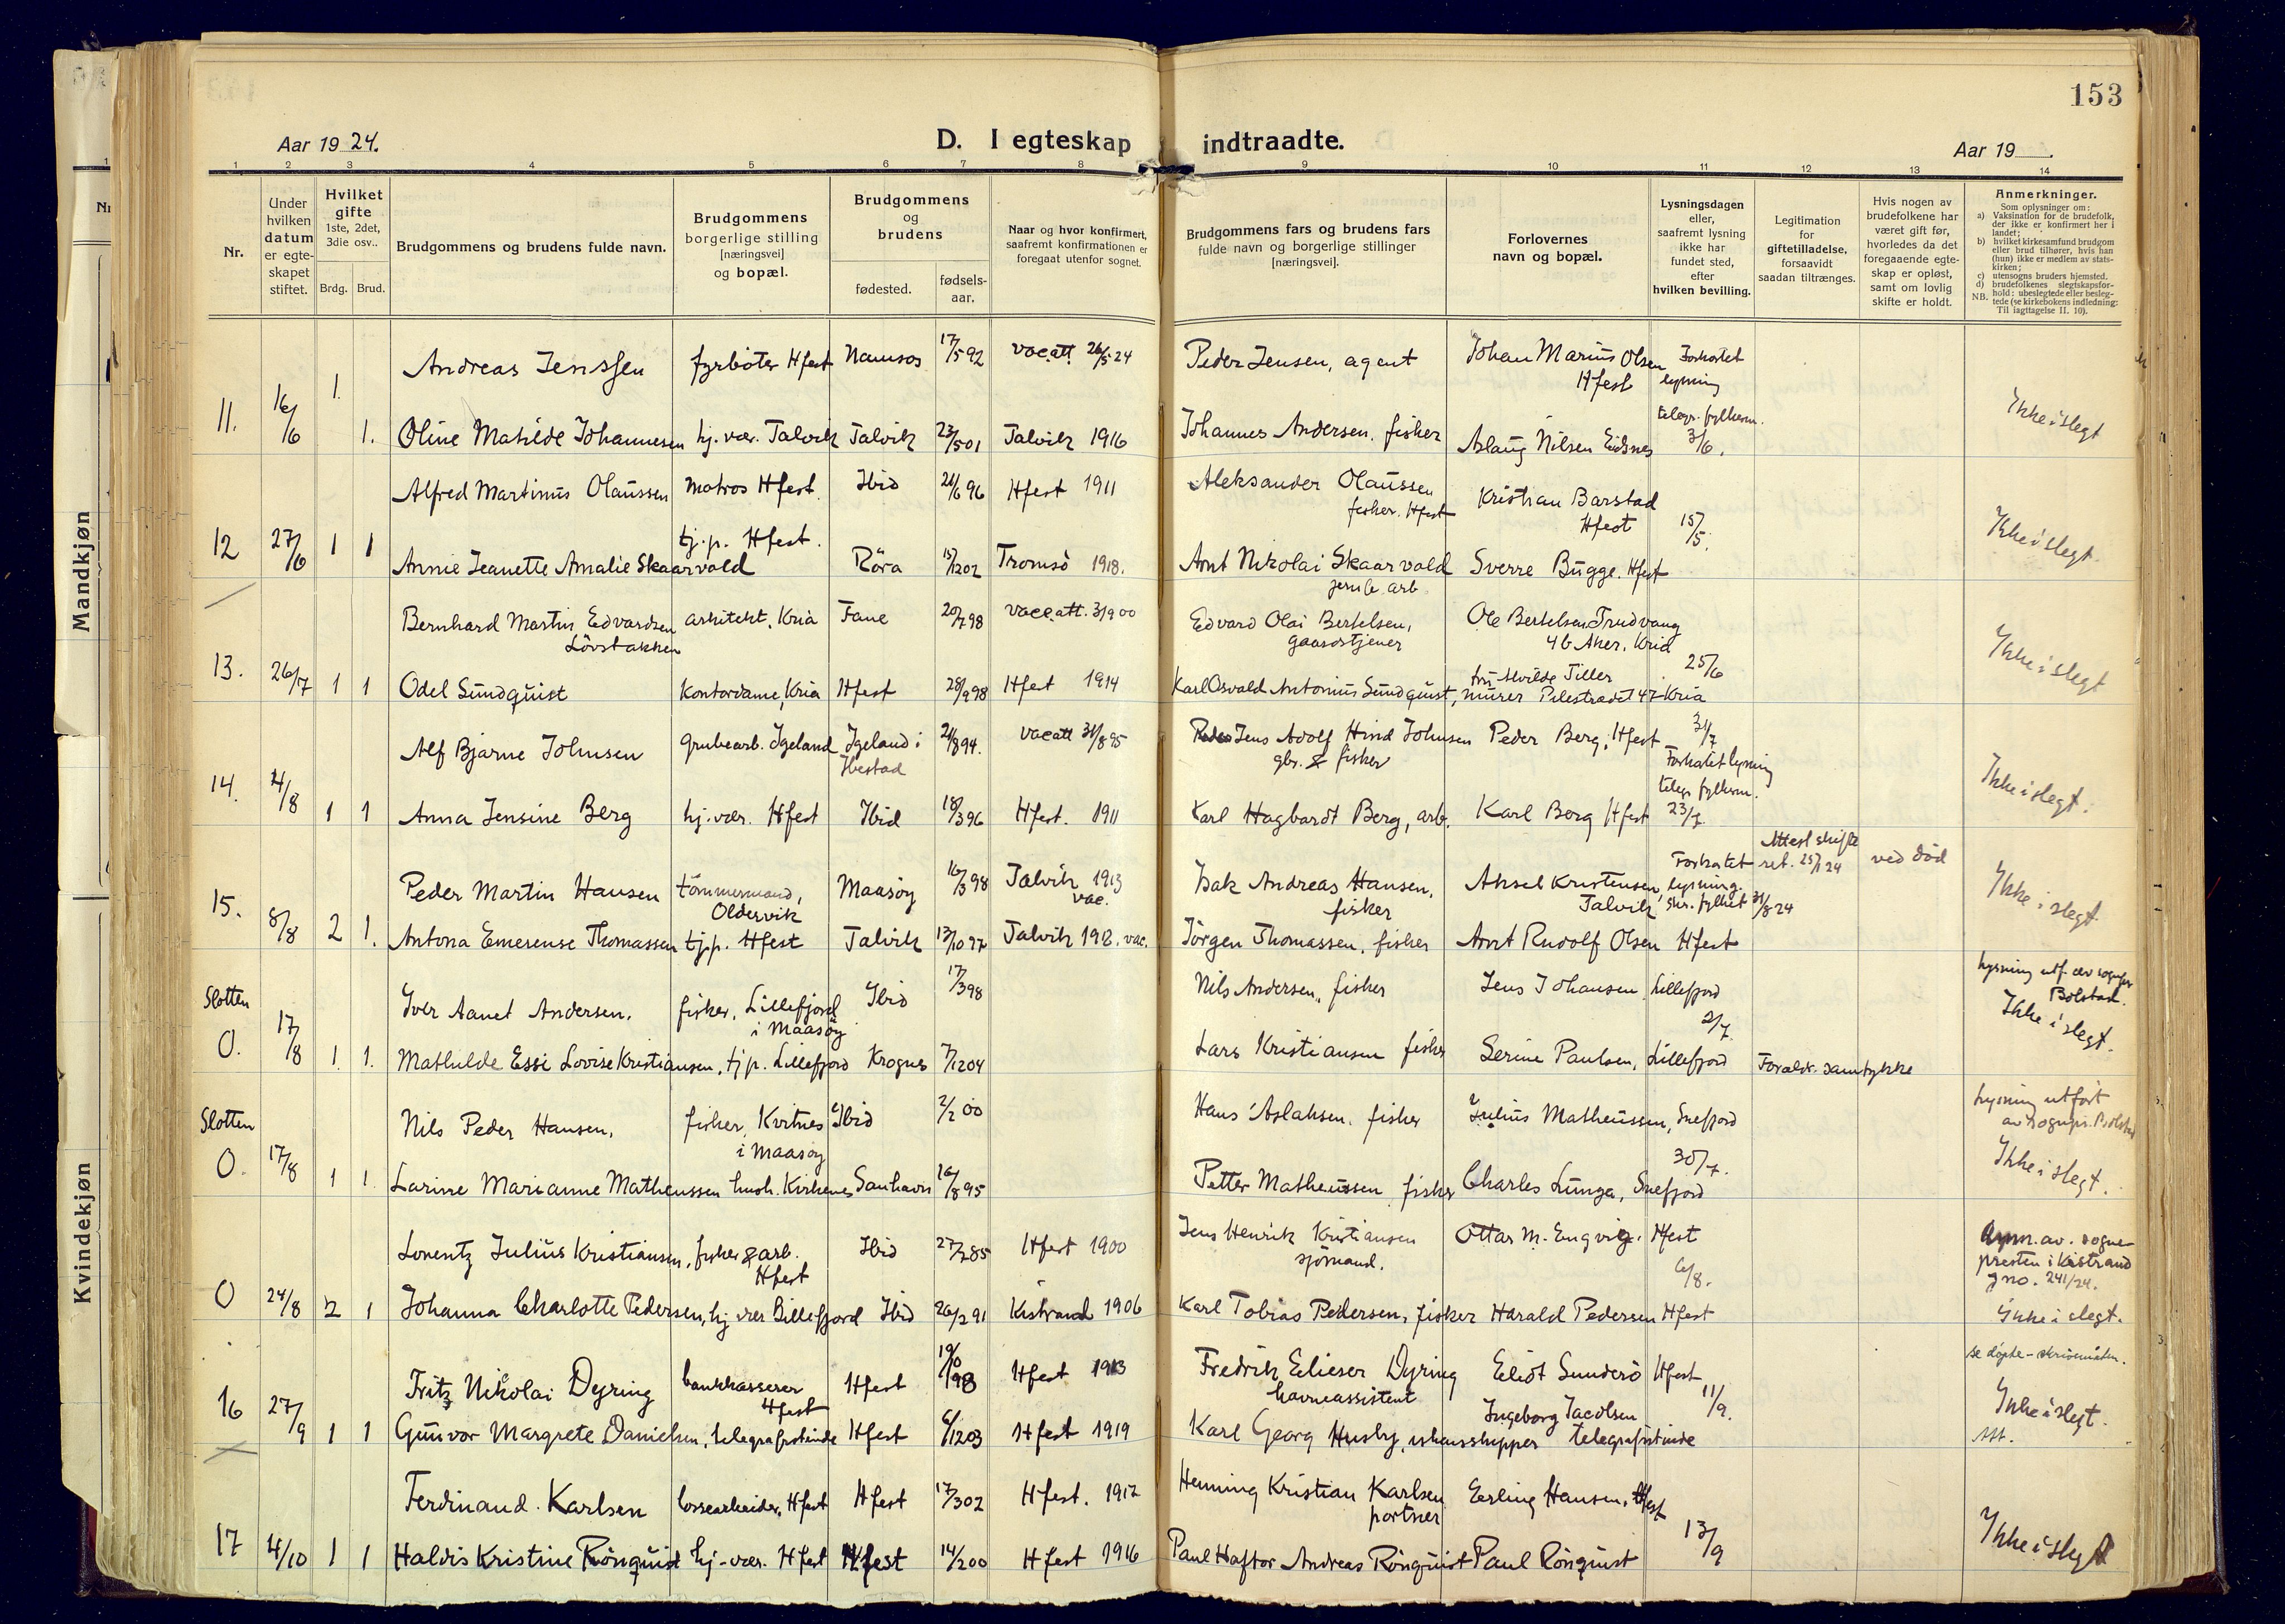 153
Aar 1924.
D. I egteskap indtraadte.
Aar 19 .
1 2 3 4 5 6 7 8 9 10 11 12 13 14
Nr.
Under hvilken datum er egteskapet stiftet.
Hvilket gifte 1ste, 2det, 3die osv..
Brdg. Brud.
Brudgommens og brudens fulde navn.
Brudgommens borgerlige stilling [næringsvei] og bopæl.
Brudgommens og brudens
fødested.
fødsels-aar.
Naar og hvor konfirmert, saafremt konfirmationen er foregaat utenfor sognet.
Brudgommens fars og brudens fars fulde navn og borgerlige stillinger [næringsvei].
Forlovernes navn og bopæl.
Lysningsdagen eller, saafremt lysning ikke har fundet sted, efter hvilken bevilling.
Legitimation for giftetilladelse, forsaavidt saadan tiltrænges.
Hvis nogen av brudefolkene har været gift før, hvorledes da det foregaaende egteskap er opløst, samt om lovlig skifte er holdt.
Anmerkninger.
Som oplysninger om:
a) Vaksination for de brudefolk, der ikke er konfirmert her i landet;
b) hvilket kirkesamfund brudgom eller brud tilhører, hvis han (hun) ikke er medlem av statskirken;
c) utensogns bruders hjemsted.
d) brudefolkenes slegtskapsforhold: ubeslegtede eller beslegtede (se kirkebokens indledning:
NB. Til iagttagelse II. 10).
Mandkjøn
Kvindekjøn
Andreas Jenssen fyrbøter Hfest Namsos 17/5 92 vac.att. 26/5 24 Peder Jensen, agent Johan Marius Olsen Hfest Forkortet lysning
11. 16/6 1. 1. Oline Matilde Johannesen hj. vær. Talvik Talvik 23/5 01 Talvik 1916 Johannes Andersen, fisker Aslaug Nilsen Eidsnes telegr. fylkesm. 3/6. Ikke i slegt
Alfred Martinus Olaussen matros Hfest. Ibid 21/6 96 Hfest 1911 Aleksander Olaussen fisker. Hfest Kristian Barstad Hfest 15/5.
12 27/6 1 1 Annie Jeanette Amalie Skaarvold tj.p. Hfest. Röra 15/12 02 Tromsö 1918. Arnt Nikolai Skaarvold jernb. arb Sverre Bugge. Hfest Ikke i slegt.
Bernhard Martin Edvardsen Lövstakken arkitekt, Kria Fane 20/7 98 vacc.att. 3/9 00 Edvard Olai Bertelsen, gaardstjener Ole Bertelsen Trudvang 4b Aker, Kria 25/6
13. 26/7 1 1 Odel Sundquist Kontordame, Kria Hfest 28/9 98 Hfest 1914 Karl Osvald Antonius Sundquist, murer fru Alvilde Tiller Pilestrædet 47 Kria Ikke i slegt
Alf Bjarne Johnsen grubearb. Igeland Igeland i Ibestad 21/8 94. vacatt 31/8 95 Jens Adolf Hind Johnsen gbr. & fisker Peder Berg, Hfest 31/7 Forkortet lysning
14. 4/8 1 1 Anna Jensine Berg hj. vær. Hfest Ibid 18/3 96 Hfest. 1911 Karl Hagbardt Berg, arb. Karl Berg Hfest telegr. fylkesm. 23/7 Ikke i slegt.
Peder Martin Hansen tömmermand, Oldervik Maasöy 16/3 98 Talvik 1913 vac. Isak Andreas Hansen, fisker Aksel Kristensen, Talvik Forkortet lysning. skr. fylket 31/8 24 Attest skifteret. 25/1 24 ved död
15. 8/8 2 1. Antona Emerense Thomassen tj.p. Hfest Talvik 13/10 97 Talvik 1912. vac. Jörgen Thomassen, fisker Arnt Rudolf Olsen Hfest Ikke i slegt.
Slotten Iver Aanet Andersen. fisker, Lillefjord i Maasöy Ibid 17/3 98 Nils Andersen, fisker Jens Johansen, Lillefjord 2/7 Lysning utf. av sognepr Bolstad.
0. 17/8 1. 1. Mathilde Essi Lovise Kristiansen, tj p. Lillefjord Krognes 7/12 04 Lars Kristiansen fisker Serine Paulsen, Lillefjord Forældr. samtykke Ikke i slegt.
Slotten Nils Peder Hansen, fisker, Kvitnes i Maasöy Ibid 2/2 00 Hans Aslaksen, fisker Julius Matheussen, Snefjord 30/7. Lysning utfört av sognepr. Bolstad
0. 17/8 1 1. Larine Marianne Matheussen hush. Kirkenes Sanhavn 16/8 95 Petter Matheussen fisker Charles Lunga, Snefjord Ikke i slegt.
Lorentz Julius Kristiansen, fisker & arb. Hfest Ibid 27/7 85 Hfest 1900 Jens Henrik Kristiansen sjömand. Ottar M. Engvig. Hfest 6/8. Lysn. av sognepresten i Kistrand jno. 241/24.
0 24/8 2 1 Johanna Charlotte Pedersen, hj vær Billefjord Ibid 26/2 91 Kistrand 1906 Karl Tobias Pedersen, fisker Harald Pedersen Hfest Ikke i slegt.
Fritz Nikolai Dyring bankkasserer Hfest Hfest 19/10 98 Hfest 1913 Fredrik Elieser Dyring havneassistent Eliot Sundsö Hfest 11/9.
16 27/9 1 1 Gunvor Margrete Danielsen, telegrafistinde Hfest 6/12 03 Hfest 1919 Karl Georg Husby, ishavsskipper Ingeborg Jacobsen telegrafistinde Ikke i slegt.
Ferdinand Karlsen lossearbeider, Hfest Hfest 17/3 02 Hfest. 1917 Henning Kristian Karlsen portner Erling Hansen, Hfest 13/9
17 4/10 1 1 Haldis Kristine Rönquist hj-vær. Hfest Hfest 14/2 00 Hfest 1916 Paul Haftor Andreas Rönquist Paul Rönquist Ikke i slegt